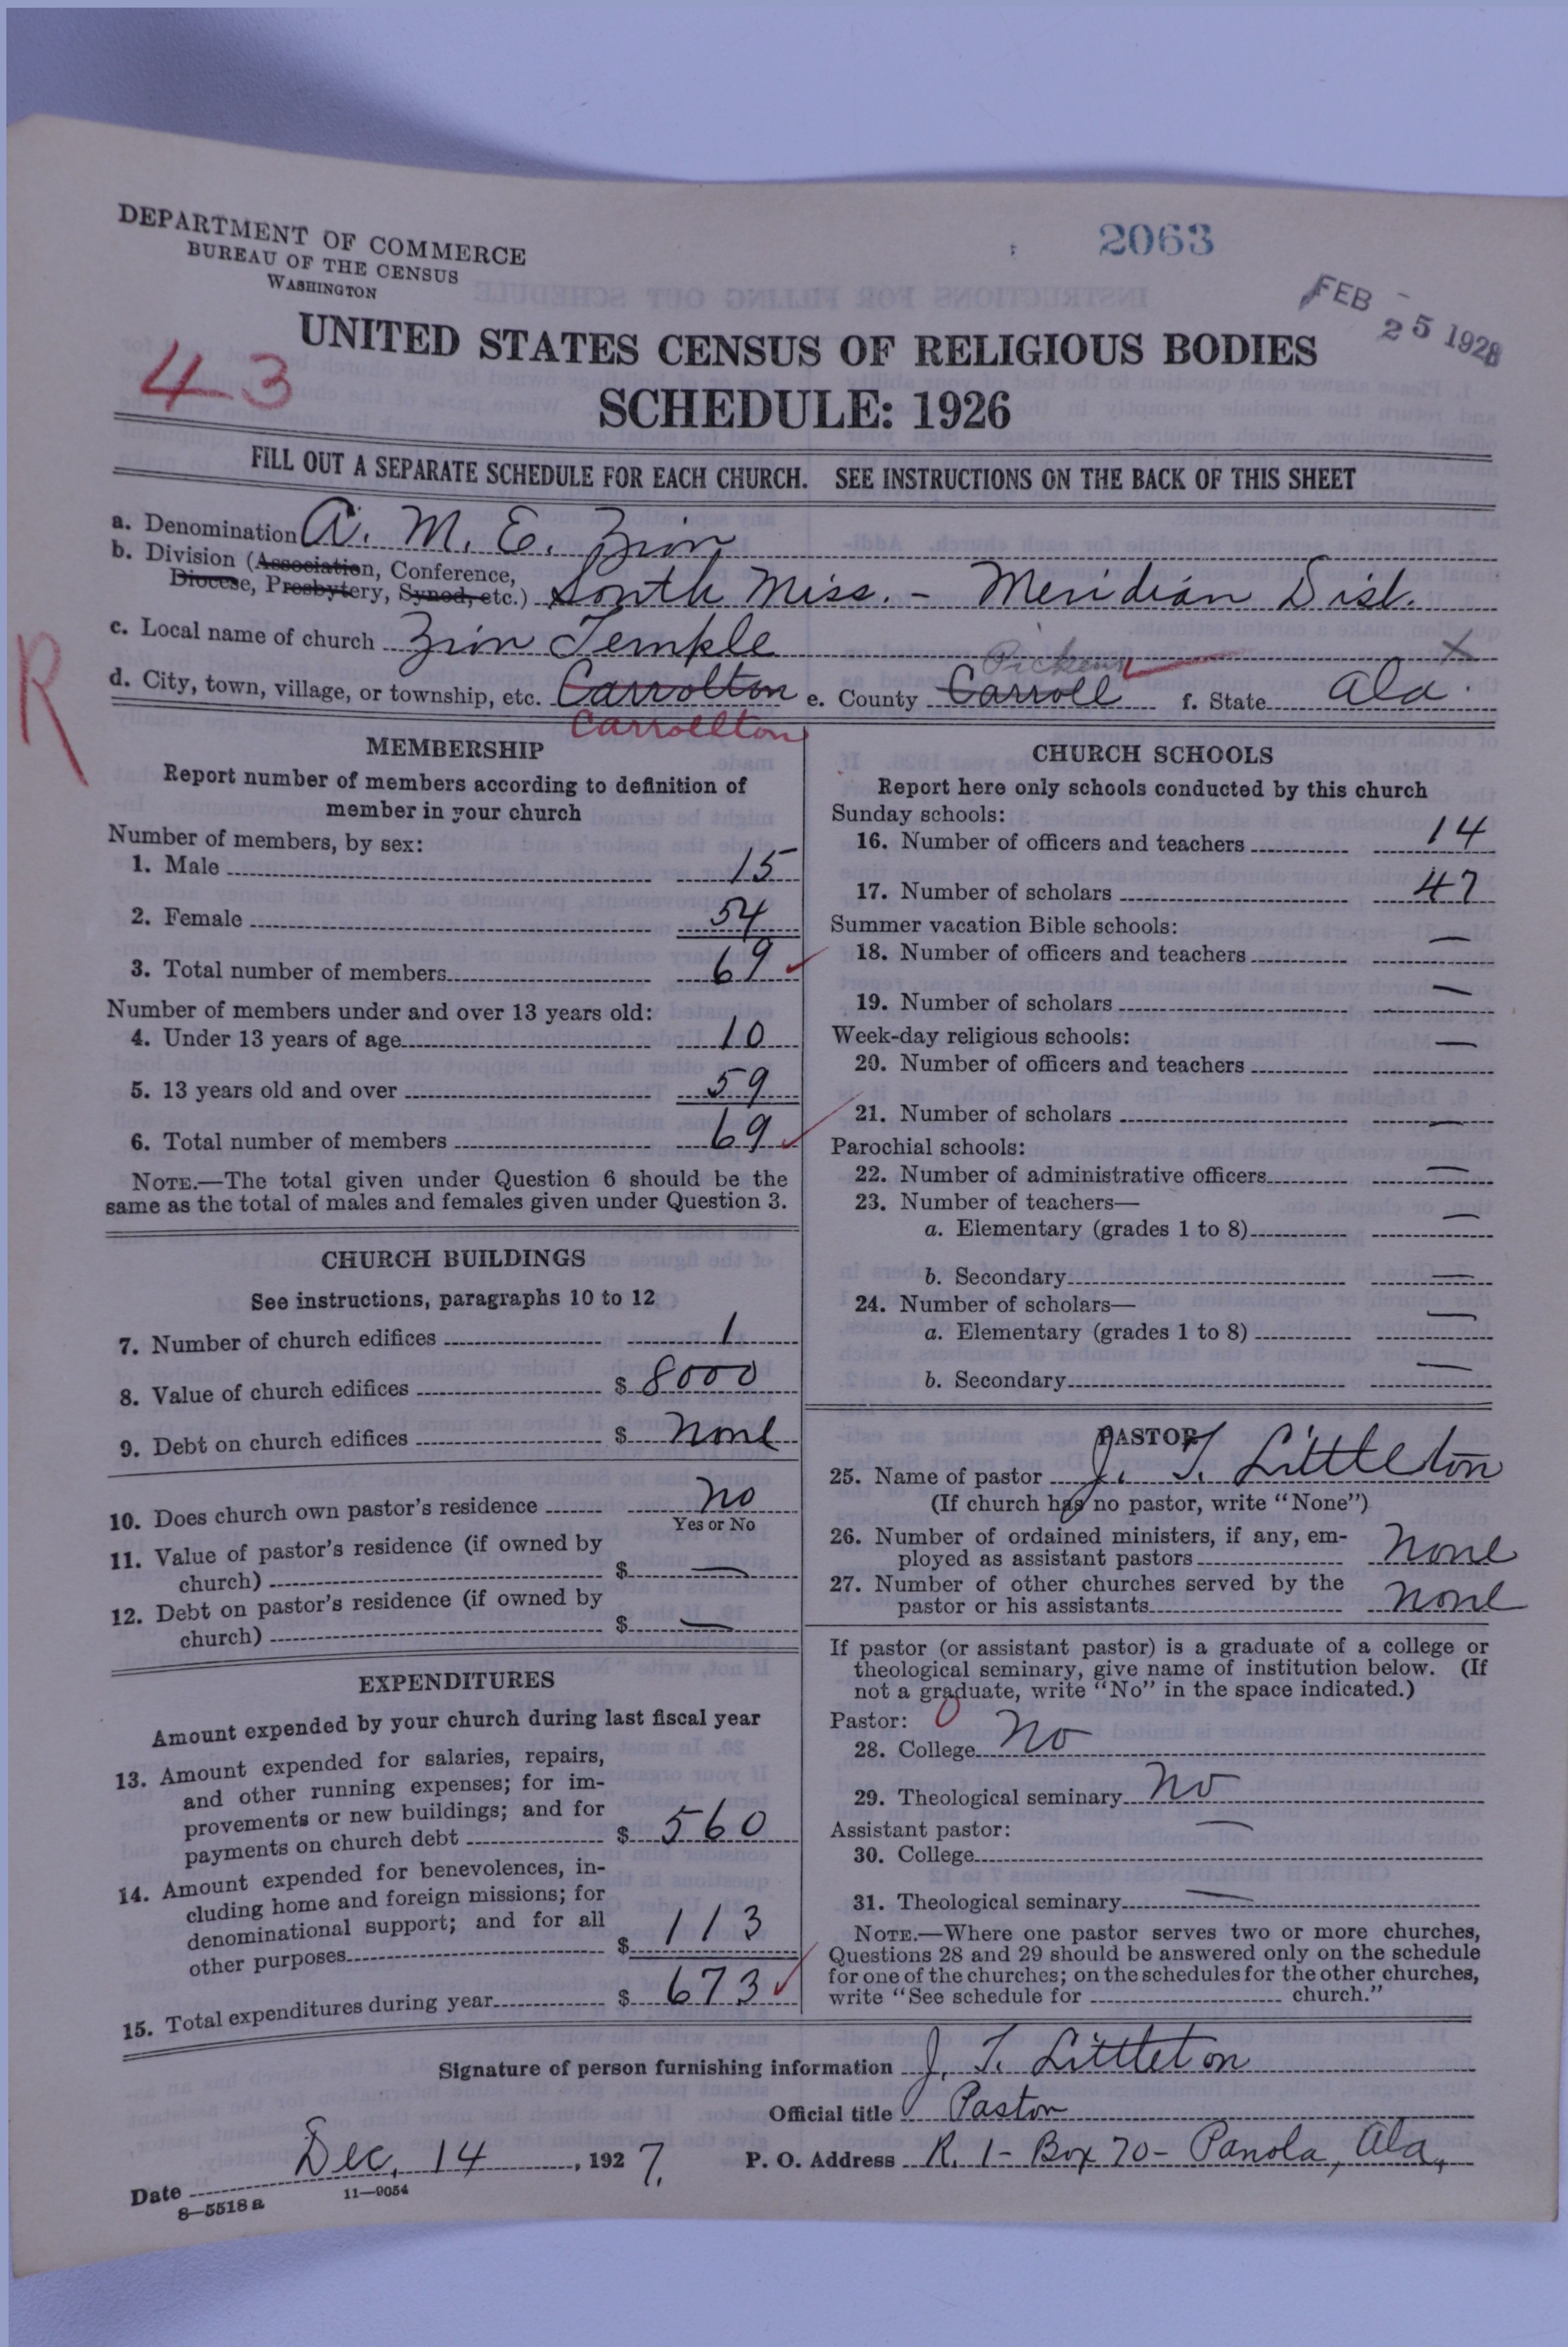 DEPARTMENT OF COMMERCE
BUREAU OF THE CENSUS
WASHINGTON
2063
FEB 25 1928
43
UNITED STATES CENSUS OF RELIGIOUS BODIES
SCHEDULE: 1926
FILL OUT A SEPARATE SCHEDULE FOR EACH CHURCH. SEE INSTRUCTIONS ON THE BACK OF THIS SHEET
a. Denomination A. M. E. Zion
b. Division (Association, Conference,
Diocese, Presbytery, Synod, etc.) South Miss. - Meridian Dist.
c. Local name of church Zion Temple
X
R
Pickens
d. City, town, village, or township, etc. Carrolton e. County Carroll f. State Ala.
Carrollton
MEMBERSHIP
Report number of members according to definition of
member in your church
Number of members, by sex:
1. Male 15
2. Female 54
3. Total number of members 69
Number of members under and over 13 years old:
4. Under 13 years of age 10
5. 13 years old and over 59
6. Total number of members 69
NOTE.—The total given under Question 6 should be the
same as the total of males and females given under Question 3.
CHURCH BUILDINGS
See instructions, paragraphs 10 to 12
7. Number of church edifices 1
8. Value of church edifices $ 8000
9. Debt on church edifices $ none
10. Does church own pastor's residence no
Yes or No
11. Value of pastor's residence (if owned by
church) $ —
12. Debt on pastor's residence (if owned by
church) $ —
EXPENDITURES
Amount expended by your church during last fiscal year
13. Amount expended for salaries, repairs,
and other running expenses; for im-
provements or new buildings; and for
payments on church debt $ 560
14. Amount expended for benevolences, in-
cluding home and foreign missions; for
denominational support; and for all
other purposes $ 113
15. Total expenditures during year $ 673
CHURCH SCHOOLS
Report here only schools conducted by this church
Sunday schools:
16. Number of officers and teachers 14
17. Number of scholars 47
Summer vacation Bible schools:
18. Number of officers and teachers —
19. Number of scholars —
Week-day religious schools:
20. Number of officers and teachers —
21. Number of scholars —
Parochial schools:
22. Number of administrative officers —
23. Number of teachers—
a. Elementary (grades 1 to 8) —
b. Secondary —
24. Number of scholars—
a. Elementary (grades 1 to 8) —
b. Secondary —
PASTOR
25. Name of pastor J. T. Littleton
(If church has no pastor, write "None")
26. Number of ordained ministers, if any, em-
ployed as assistant pastors none
27. Number of other churches served by the
pastor or his assistants none
If pastor (or assistant pastor) is a graduate of a college or
theological seminary, give name of institution below. (If
not a graduate, write "No" in the space indicated.)
Pastor: 0
28. College No
29. Theological seminary No
Assistant pastor:
30. College —
31. Theological seminary —
NOTE.—Where one pastor serves two or more churches,
Questions 28 and 29 should be answered only on the schedule
for one of the churches; on the schedules for the other churches,
write "See schedule for church."
Signature of person furnishing information J. T. Littleton
Official title Pastor
Date Dec. 14, 1927. P. O. Address R. 1 - Box 70 - Panola, Ala,
8—5518 a 11—9054